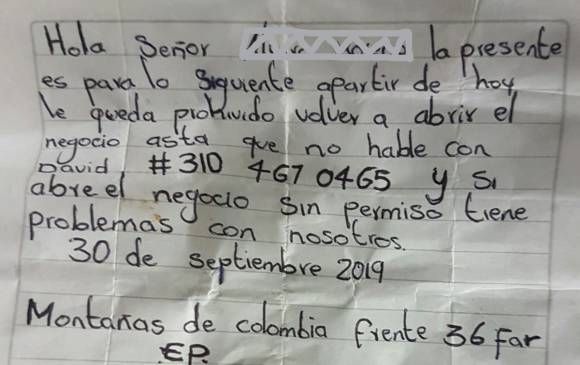 Hola Señor la presente
es para lo siguiente apartir de hoy
le queda prohivido volver a abrir el
negocio asta que no hable con
David #310 467 0465 y si
abre el negocio sin permiso tiene
problemas con nosotros.
30 de septiembre 2019
Montañas de colombia frente 36 Far
EP.